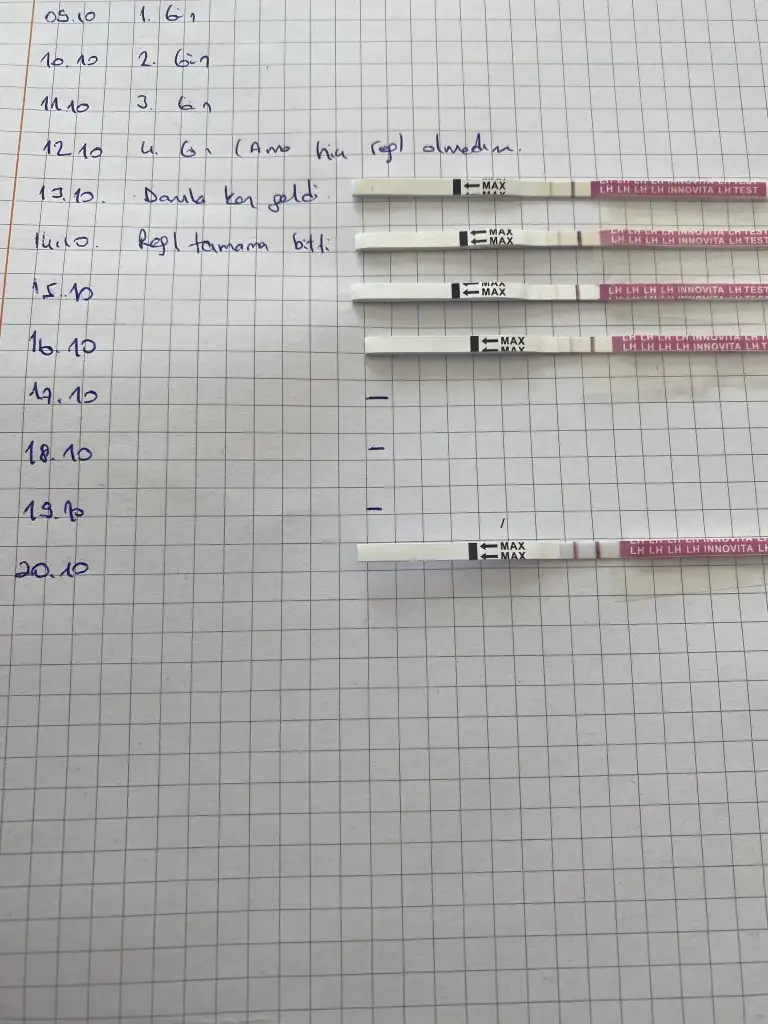 09.10 1. Gün
10.10 2. Gün
11.10 3. Gün
12.10 4. Gün (Ama hiç regl olmadım.
13.10. Damla kan geldi.
MAX
MAX
LH LH LH LH INNOVITA LH TEST
14.10. Regl tamama bitti
MAX
MAX
LH LH LH LH INNOVITA LH TEST
15.10
MAX
MAX
LH LH LH LH INNOVITA LH TEST
16.10
MAX
MAX
LH LH LH LH INNOVITA LH T
17.10 —
18.10 —
19.10 —
20.10
MAX
MAX
LH LH LH LH INNOVITA LH